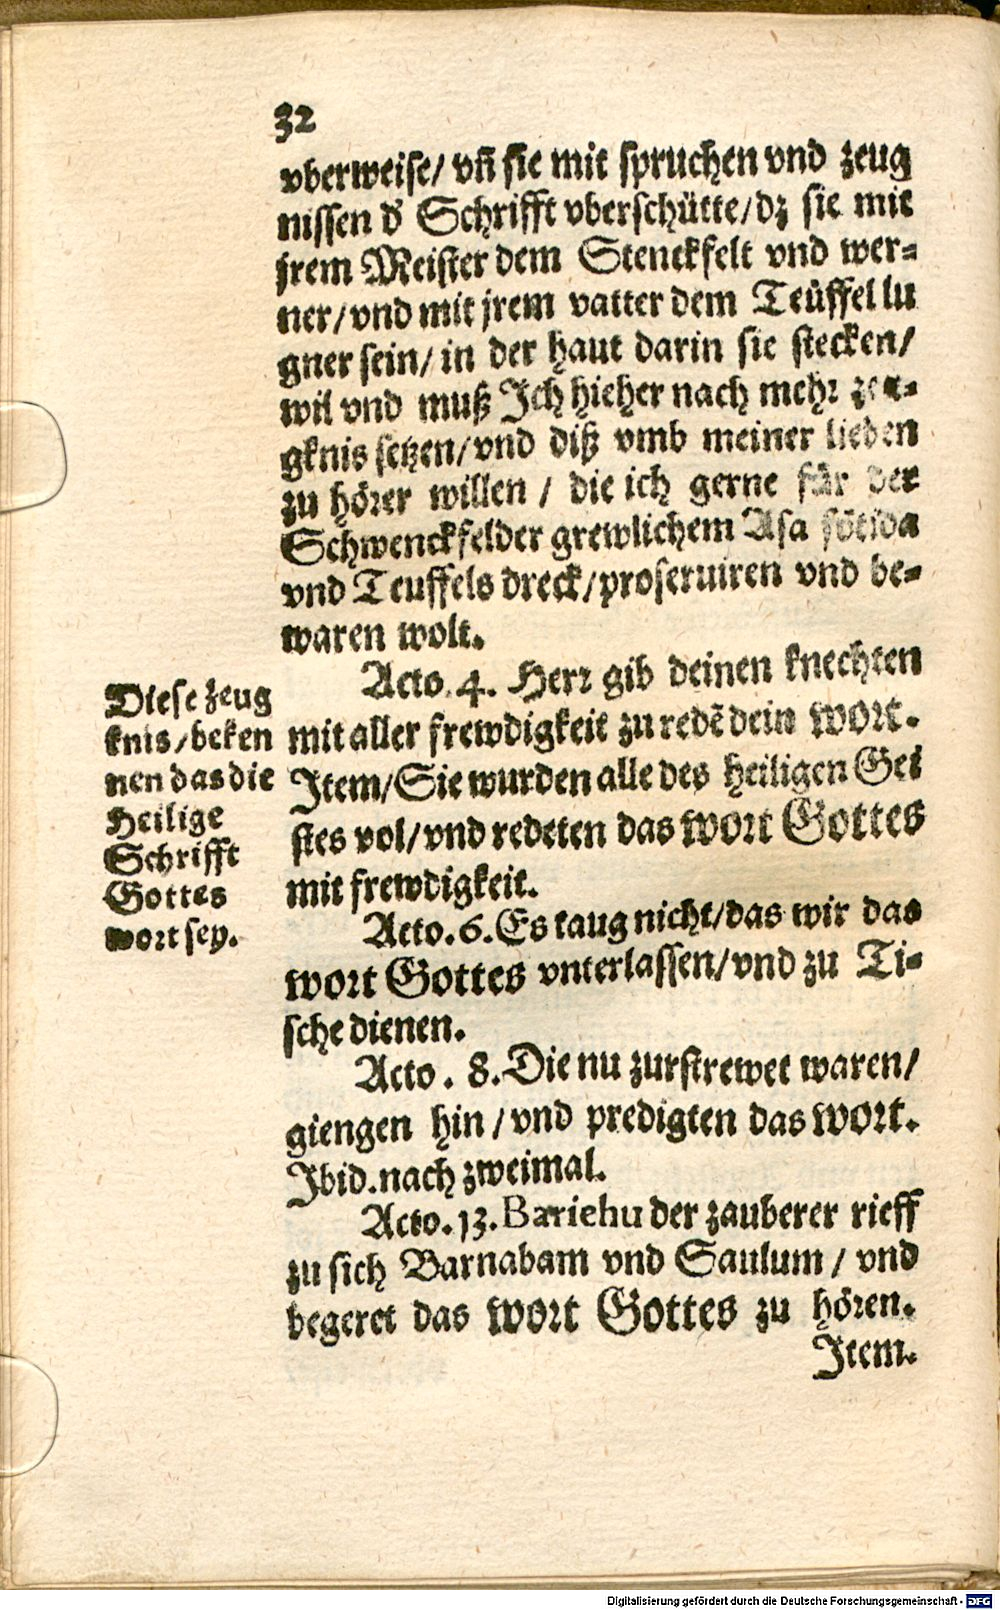 32
vberweise/ vñ sie mit spruchen vnd zeug
nissen d' Schrifft vberschütte/dz sie mit
jrem Meister dem Stenckfelt vnd wer-
ner/vnd mit jrem vatter dem Teüffel lu
gner sein/ in der haut darin sie stecken/
wil vnd muß Ich hieher nach mehr zeu-
gknis setzen/vnd diß vmb meiner lieben
zu hörer willen / die ich gerne für der
Schwenckfelder grewlichem Asa fötida
vnd Teuffels dreck/proseruiren vnd be-
waren wolt.
Acto. 4. Herr gib deinen knechten
mit aller frewdigkeit zu redẽ dein wort.
Item/Sie wurden alle des heiligen Gei
stes vol/vnd redeten das wort Gottes
mit frewdigkeit.
Diese zeug
knis/beken
nen das die
Heilige
Schrifft
Gottes
wort sey.
Acto. 6. Es taug nicht/das wir das
wort Gottes vnterlassen/vnd zu Ti-
sche dienen.
Acto. 8. Die nu zurstrewet waren/
giengen hin /vnd predigten das wort.
Ibid. nach zweimal.
Acto. 13. Bariehu der zauberer rieff
zu sich Barnabam vnd Saulum / vnd
begeret das wort Gottes zu hören.
Item.
Digitalisierung gefördert durch die Deutsche Forschungsgemeinschaft - DFG